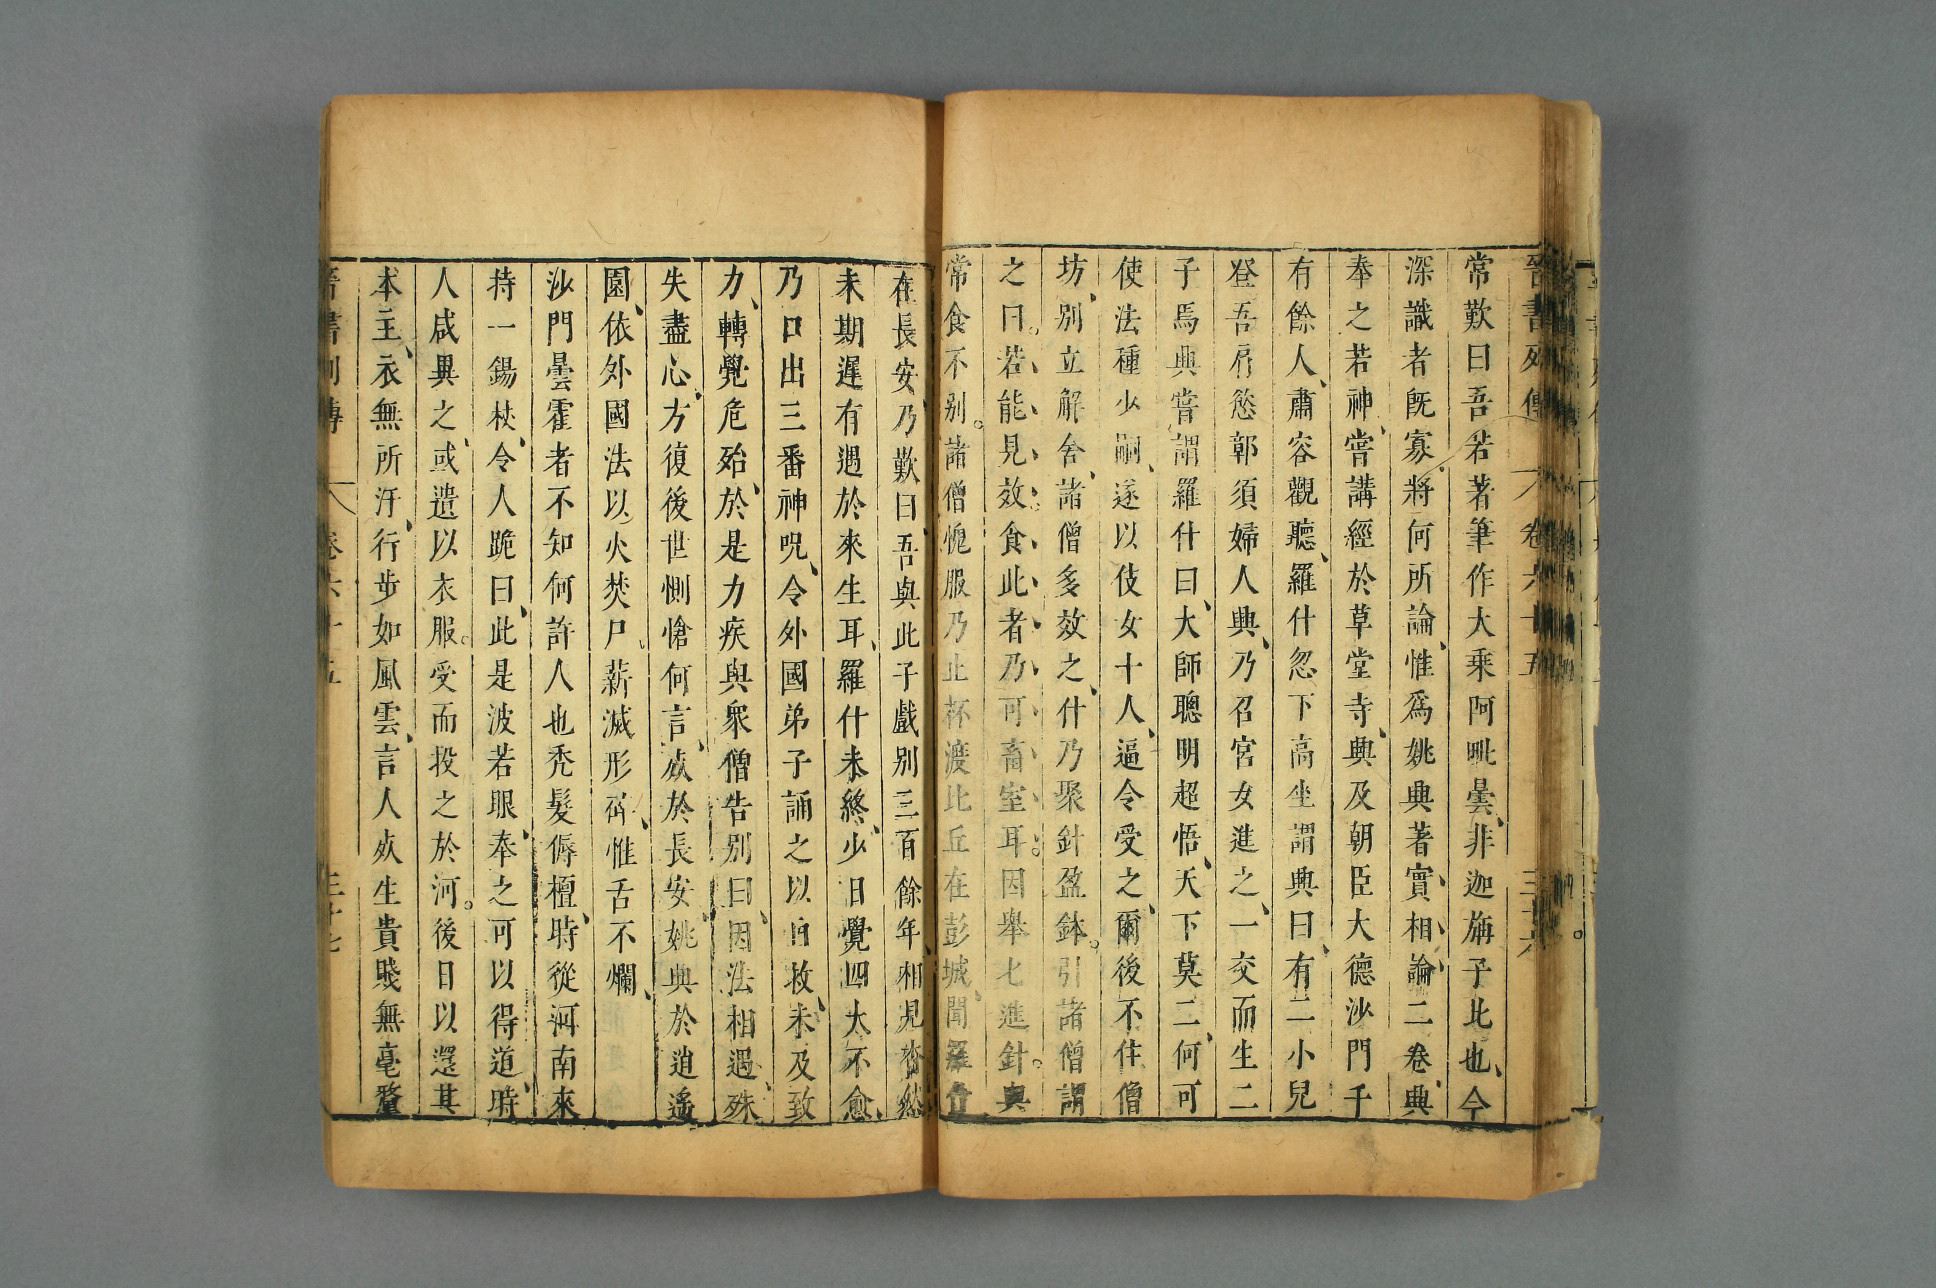 晉書列傳 卷六十五 三十六
常歎曰吾若著筆作大乘阿毗曇、非迦旃子比也、今
深識者既寡、將何所論、惟爲姚興著實相論二卷、興
奉之若神、嘗講經於草堂寺、興及朝臣大德沙門千
有餘人、肅容觀聽、羅什忽下高坐謂興曰、有二小兒
登吾肩慾鄣須婦人興、乃召宮女進之、一交而生二
子焉興嘗謂羅什曰、大師聰明超悟、天下莫二、何可
使法種少嗣、遂以伎女十人、逼令受之、爾後不住僧
坊、別立解舍、諸僧多效之、什乃聚針盈鉢。引諸僧謂
之曰。若能見效食此者乃可畜室耳。因舉匕進針。與
常食不別。諸僧愧服乃止杯渡比丘在彭城、聞羅什
在長安、乃歎曰、吾與此子戲別三百餘年、相見杳然
未期遲有遇於來生耳、羅什未終、少日覺四大不愈、
乃口出三番神呪、令外國弟子誦之以自救、未及致
力、轉覺危殆、於是力疾與衆僧告別曰、因法相遇、殊
失盡心、方復後世惻愴何言、死於長安、姚興於逍遙
園、依外國法以火焚尸、薪滅形碎、惟舌不爛、
沙門曇霍者不知何許人也禿髮傉檀、時從河南來
持一錫杖、令人跪曰、此是波若眼、奉之可以得道、時
人咸異之、或遺以衣服。受而投之於河。後日以還其
本主、衣無所汙、行步如風雲、言人死生貴賤無毫釐
晉書列傳 卷六十五 三十七